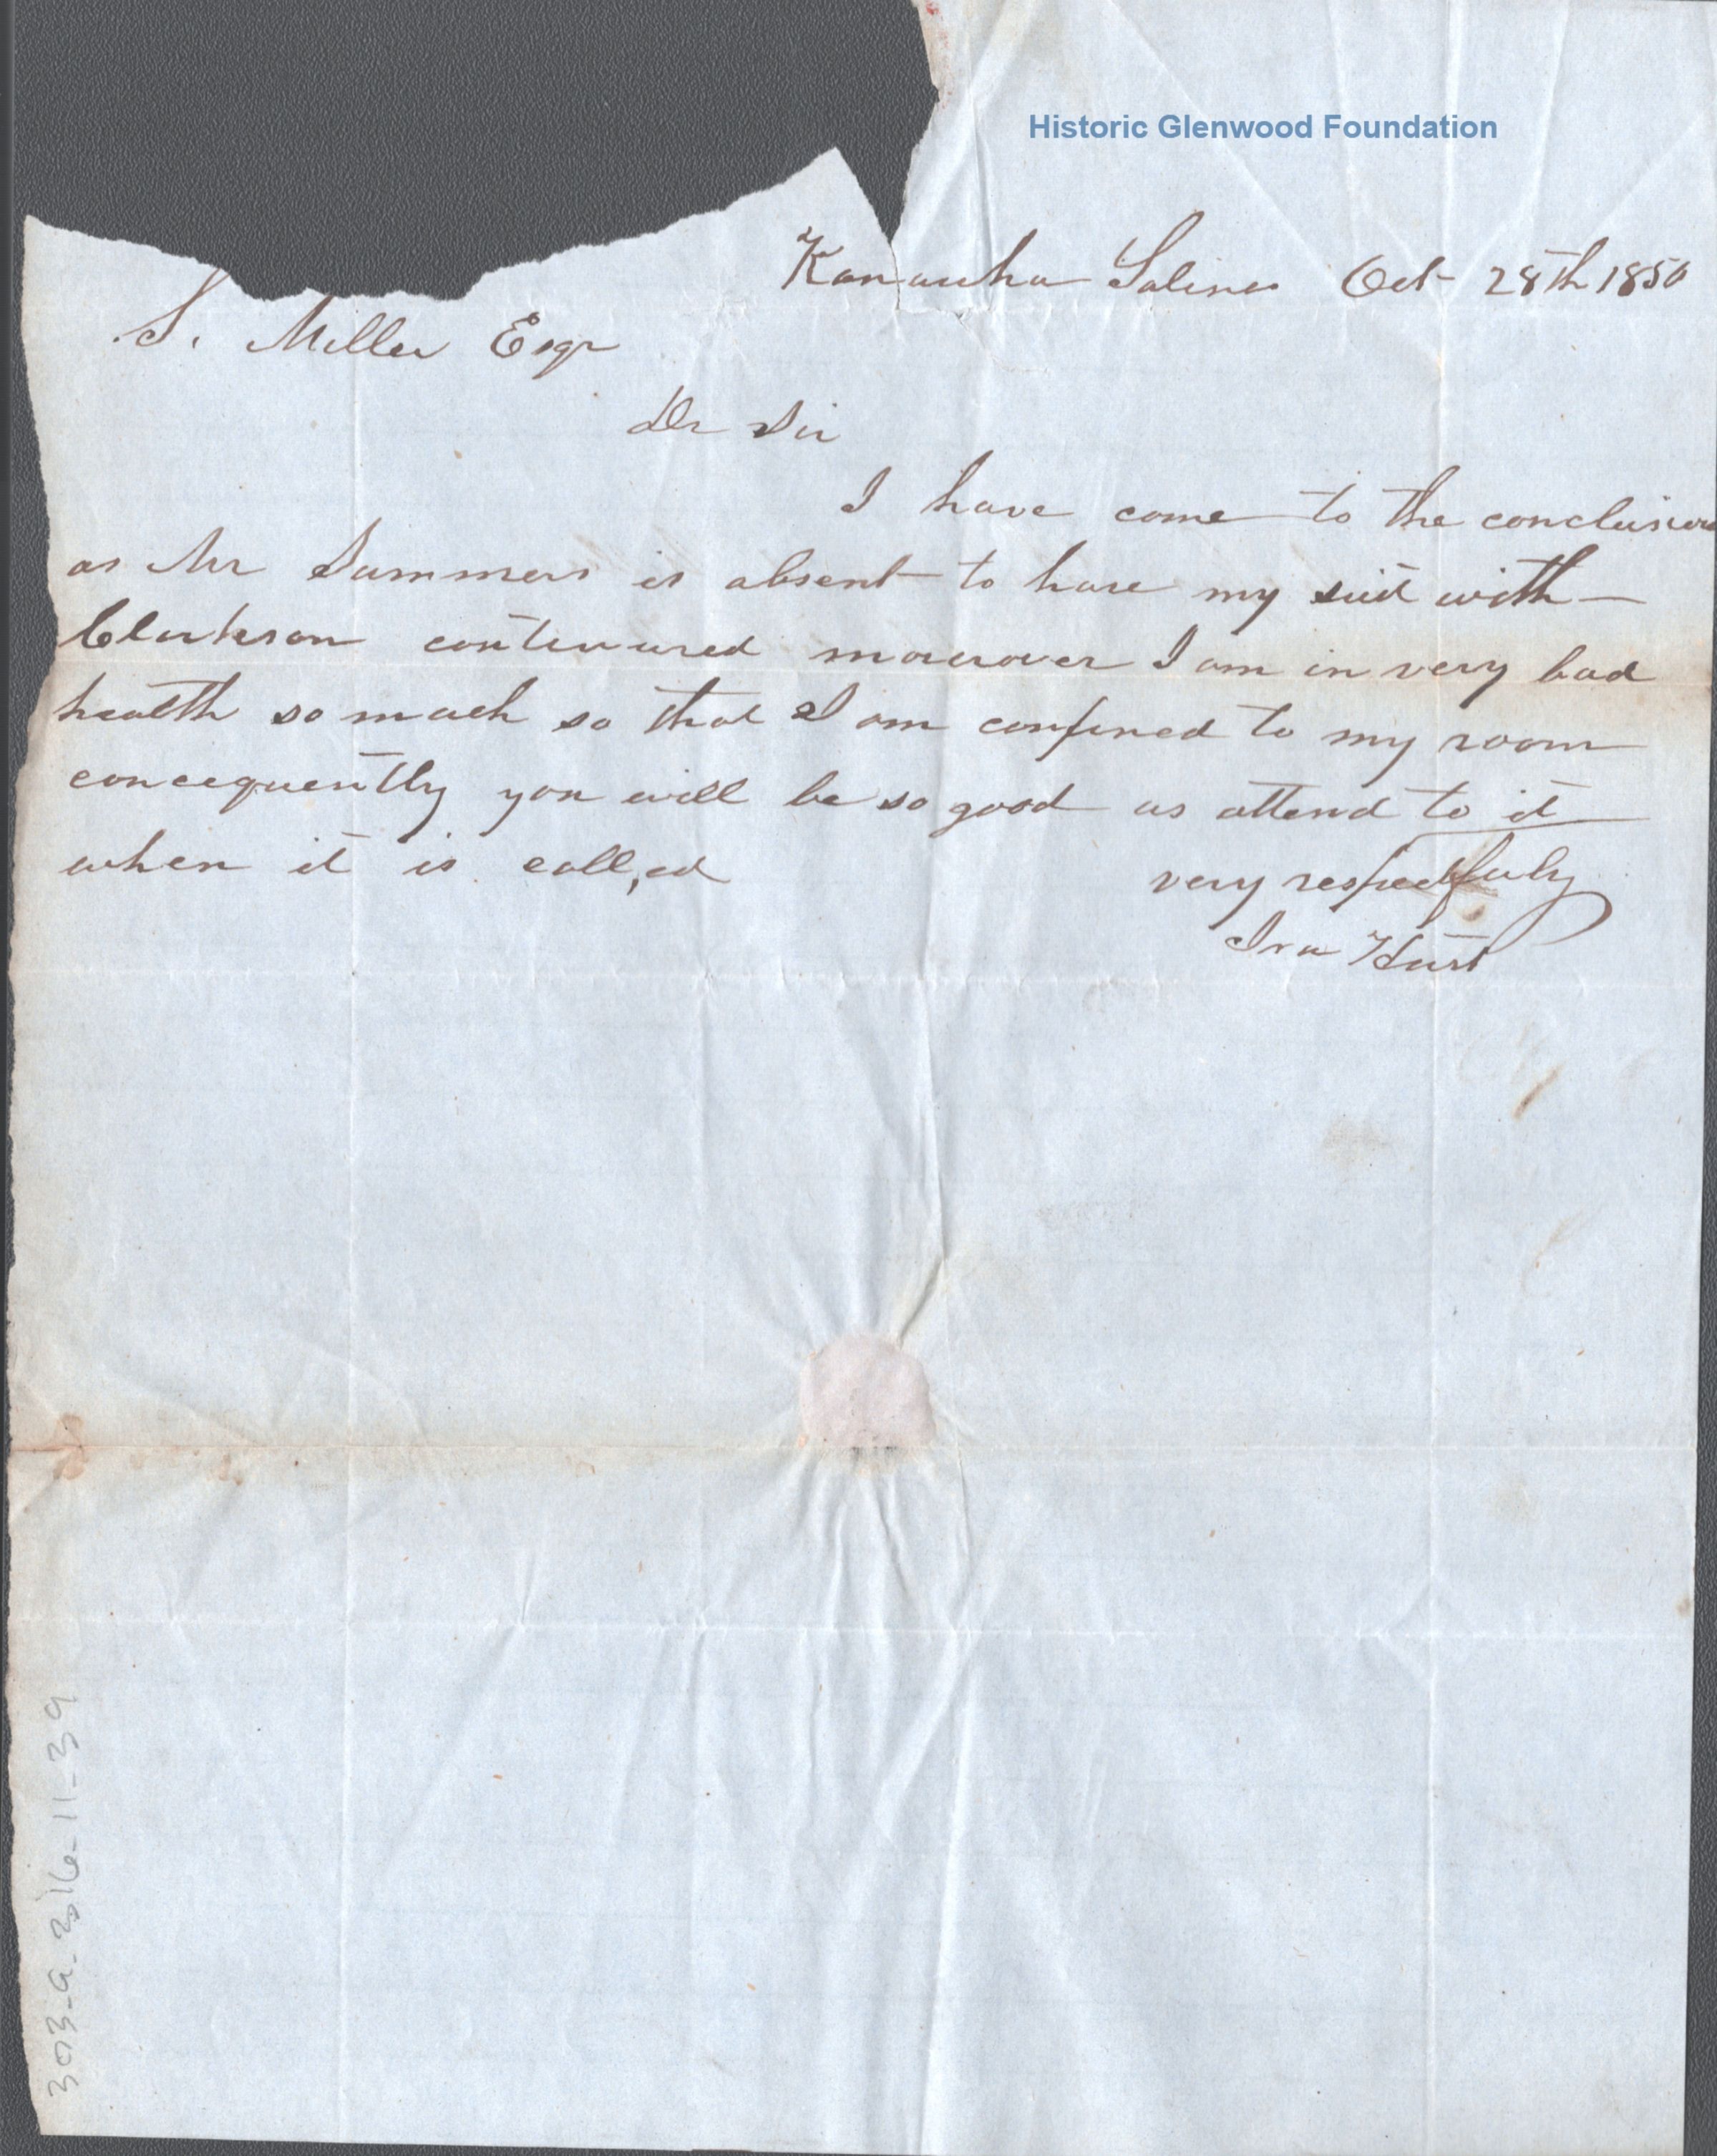 Historic Glenwood Foundation
Kanawha Salines Oct 28th 1850
S. Miller Esqr
Dr Sir
I have come to the conclusion
as Mr Summers is absent to have my suit with
Clarkson continured moreover I am in very bad
health so much so that I am confined to my room
concequently you will be so good as attend to it
when it is call,ed very respectfuly
Ira Hurt
303-a-216-11-39